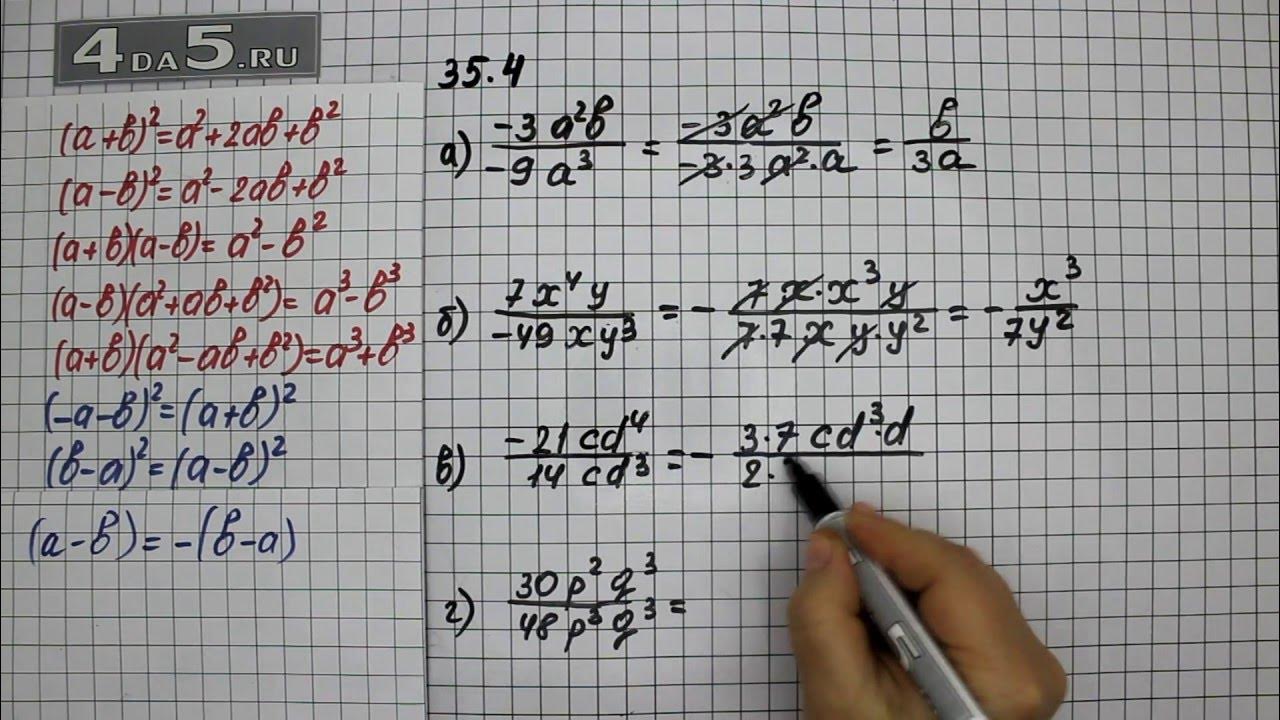 4DA5.RU
(a+b)²=a²+2ab+b²
(a-b)²=a²-2ab+b²
(a+b)(a-b)=a²-b²
(a-b)(a²+ab+b²)=a³-b³
(a+b)(a²-ab+b²)=a³+b³
(-a-b)²=(a+b)²
(b-a)²=(a-b)²
(a-b)=-(b-a)
35.4
а) -3a²b/-9a³ = -3a²b/-3·3a²·a = b/3a
б) 7x⁴y/-49xy³ = - 7x·x³y/7·7xy·y² = - x³/7y²
в) -21cd⁴/14cd³ = - 3·7cd³·d/2·
г) 30p²q³/48p³q³ =